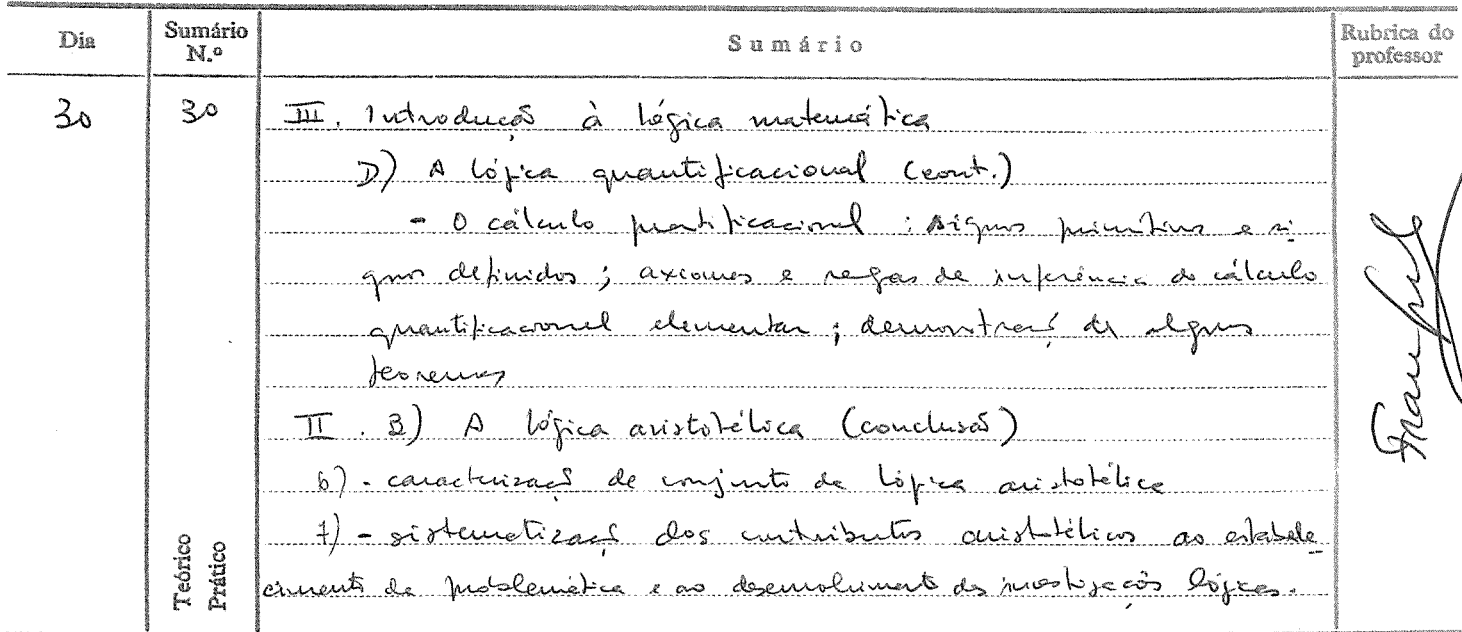 Dia Sumário N.º Sumário Rubrica do professor
30 30 III. Introdução à lógica matemática
D) A lógica quantificacional (cont.)
- O cálculo quantificacional : signos primitivos e si
gnos definidos ; axiomas e regras de inferência do cálculo
quantificacional elementar ; demonstração de alguns
teoremas
II . B) A lógica aristotélica (conclusão)
6) - caracterização de conjunto da lógica aristotélica
7) - sistematização dos contributos aristotélicos ao estabele
cimento da problemática e ao desenvolvimento das investigações lógicas.
Teórico
Prático